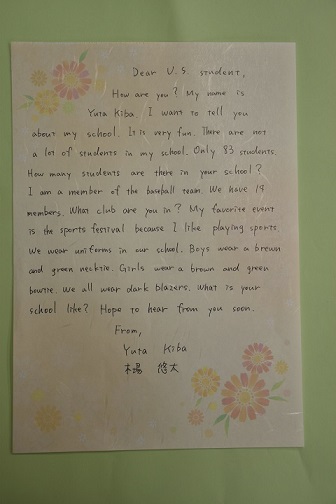 Dear U.S. student,
How are you? My name is
Yuta Kiba. I want to tell you
about my school. It is very fun. There are not
a lot of students in my school. Only 83 students.
How many students are there in your school?
I am a member of the baseball team. We have 19
members. What club are you in? My favorite event
is the sports festival because I like playing sports
We wear uniforms in our school. Boys wear a brown
and green necktie. Girls wear a brown and green
bowtie. We all wear dark blazers. What is your
school like? Hope to hear from you soon.
From,
Yuta Kiba
木場 悠大